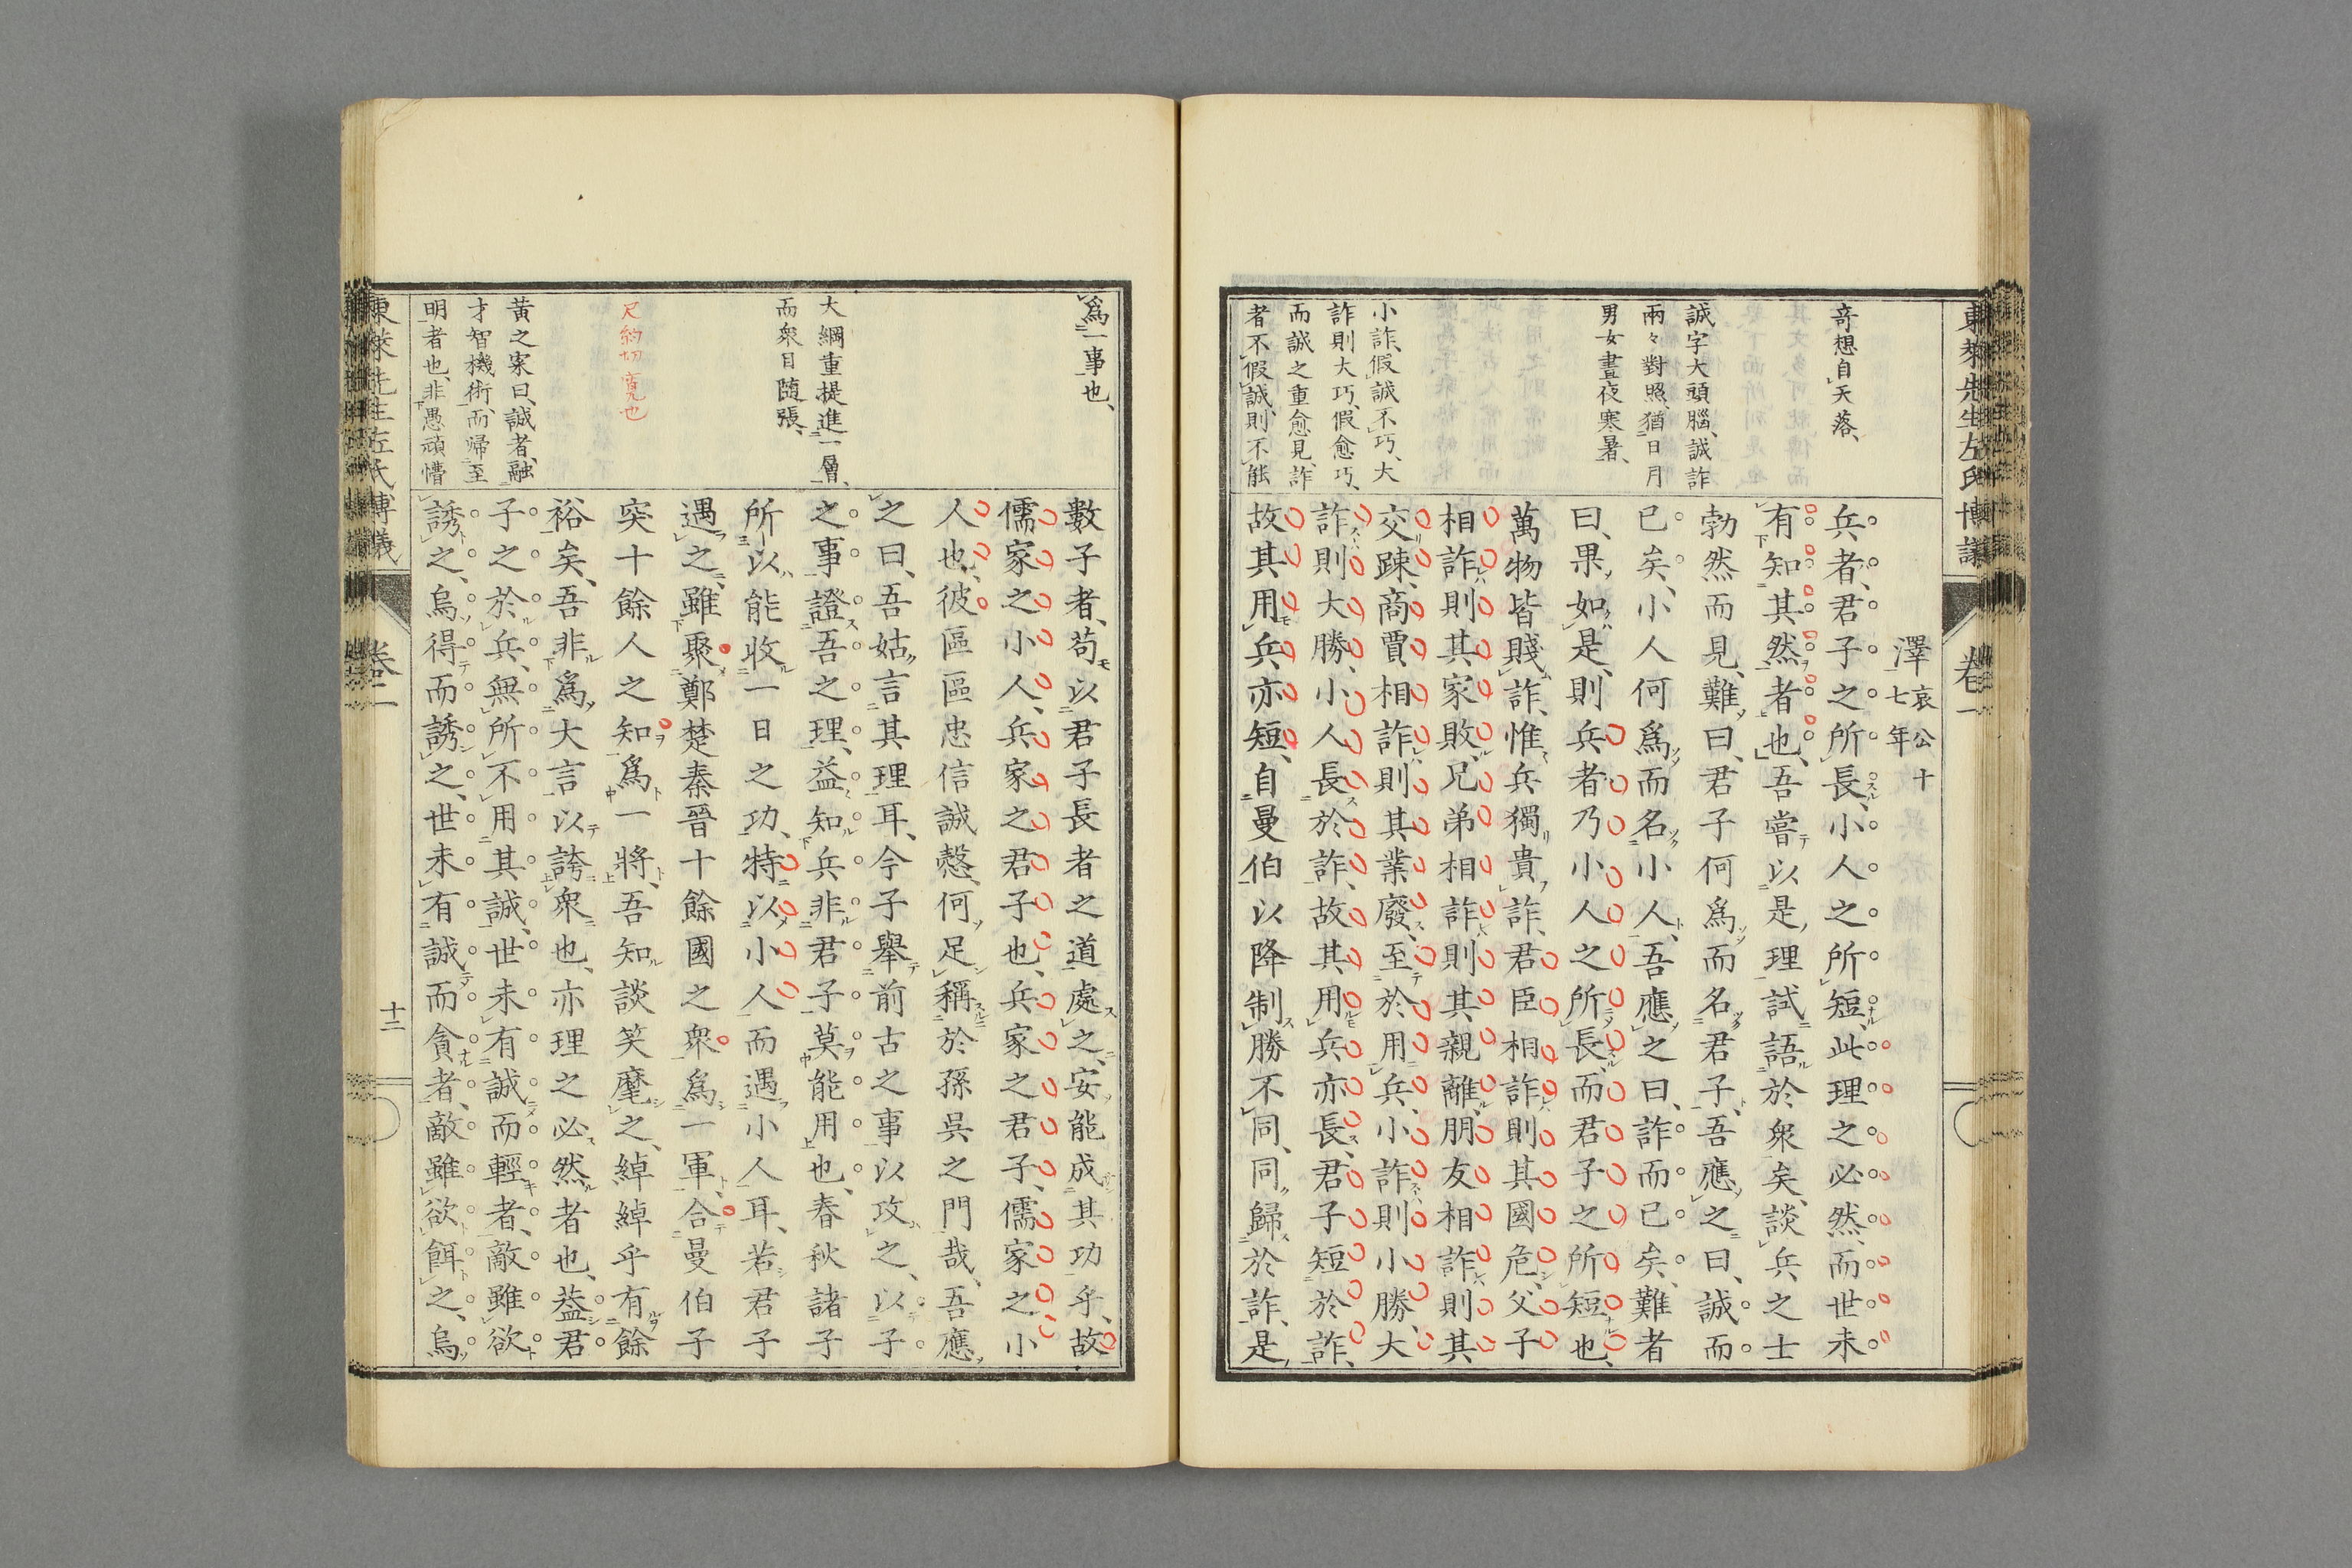 東萊先生左氏博議
卷二
澤 哀公十七年
兵者、君子之所長、小人之所短、此理之必然、而世未
有知其然者也、吾嘗以是理試語於衆矣、談兵之士
勃然而見難曰、君子何爲而名君子、吾應之曰、誠而
已矣、小人何爲而名小人、吾應之曰、詐而已矣、難者
曰、果如是、則兵者乃小人之所長、而君子之所短也、
萬物皆賤詐、惟兵獨貴詐、君臣相詐則其國危、父子
相詐則其家敗、兄弟相詐則其親離、朋友相詐則其
交踈、商賈相詐則其業廢、至於用兵、小詐則小勝、大
詐則大勝、小人長於詐、故其用兵亦長、君子短於詐、
故其用兵亦短、自曼伯以降制勝不同、同歸於詐、是
奇想自天落、
誠字大頭腦、誠詐
兩々對照、猶日月
男女晝夜寒暑、
小詐、假誠不巧、大
詐則大巧、假愈巧、
而誠之重愈見、詐
者不假誠、則不能
爲一事也、
數子者、苟以君子長者之道處之、安能成其功乎、故
儒家之小人、兵家之君子也、兵家之君子、儒家之小
人也、彼區區忠信誠慤、何足稱於孫吳之門哉、吾應
之曰、吾姑言其理耳、今子舉前古之事以攻之、以子
之事證吾之理、益知兵非君子莫能用也、春秋諸子
所以能收一日之功、特以小人而遇小人耳、若君子
遇之、雖聚鄭楚秦晉十餘國之衆爲一軍、合曼伯子
突十餘人之知爲一將、吾知談笑麾之、綽綽乎有餘
裕矣、吾非爲大言以誇衆也、亦理之必然者也、葢君
子之於兵、無所不用其誠、世未有誠而輕者、敵雖欲
誘之、烏得而誘之、世未有誠而貪者、敵雖欲餌之、烏
大綱重提進一層、
而衆目隨張、
尺約切 寬也
黃之寀曰、誠者、融
才智機術、而歸至
明者也、非愚頑懵
東萊先生左氏博議
卷二
十二